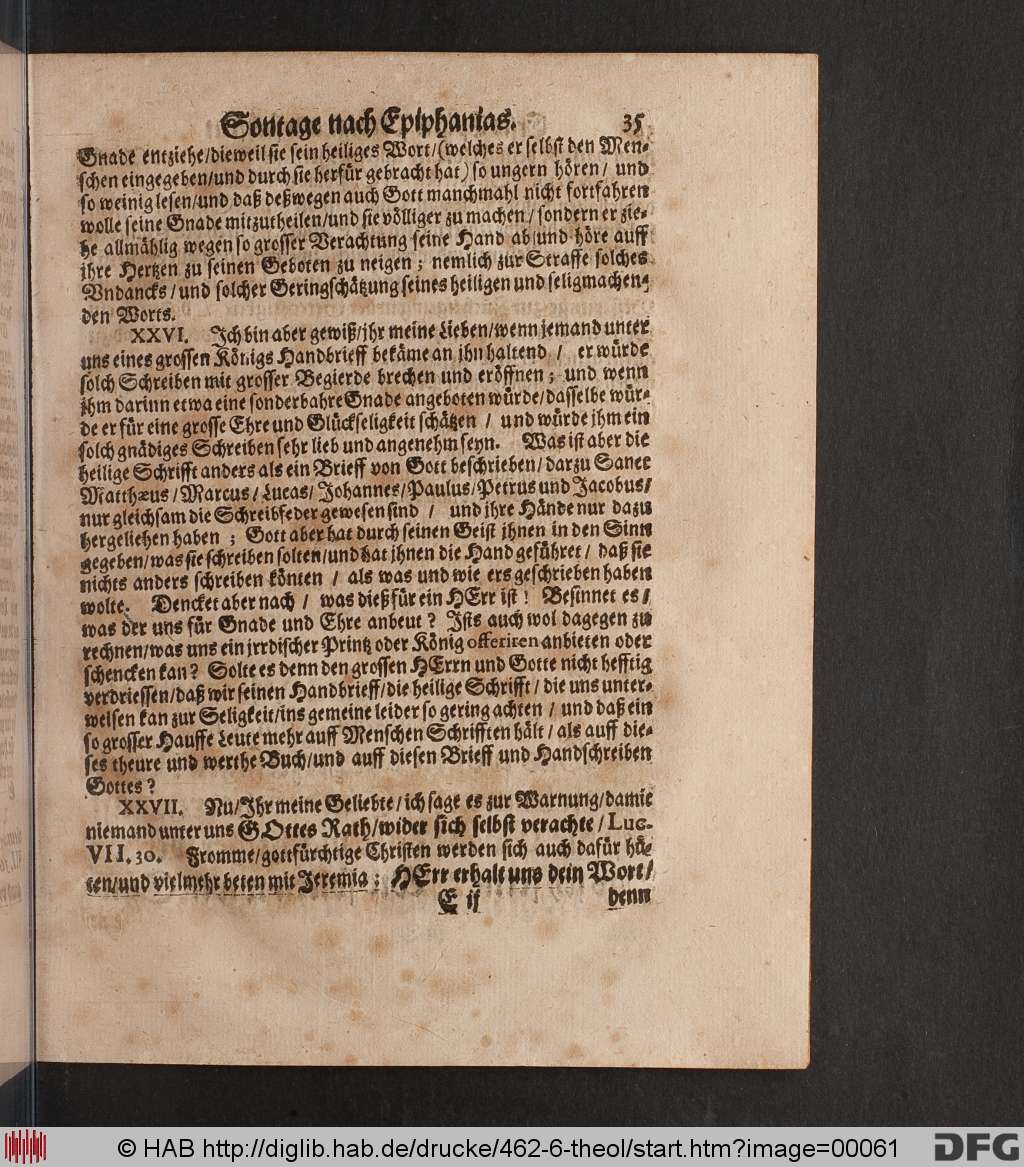 Sontage nach Epiphanias. 35
Gnade entziehe/dieweil sie sein heiliges Wort/(welches er selbst den Men-
schen eingegeben/und durch sie herfür gebracht hat) so ungern hören/ und
so weinig lesen/und daß deßwegen auch Gott manchmahl nicht fortfahren
wolle seine Gnade mitzutheilen/und sie völliger zu machen/ sondern er zie-
he allmählig wegen so grosser Verachtung seine Hand ab/und höre auff
jhre Hertzen zu seinen Geboten zu neigen; nemlich zur Straffe solches
Vndancks/und solcher Geringschätzung seines heiligen und seligmachen-
den Worts.
XXVI. Ich bin aber gewiß/jhr meine Lieben/wenn jemand unter
uns eines grossen Königs Handbrieff bekäme an jhn haltend/ er würde
solch Schreiben mit grosser Begierde brechen und eröffnen; und wenn
jhm darinn etwa eine sonderbahre Gnade angeboten würde/dasselbe wür-
de er für eine grosse Ehre und Glückseligkeit schätzen/ und würde jhm ein
solch gnädiges Schreiben sehr lieb und angenehm seyn. Was ist aber die
heilige Schrifft anders als ein Brieff von Gott beschrieben/darzu Sanct
Matthæus/Marcus/Lucas/Johannes/Paulus/Petrus und Jacobus/
nur gleichsam die Schreibfeder gewesen sind/ und jhre Hände nur dazu
hergeliehen haben; Gott aber hat durch seinen Geist jhnen in den Sinn
gegeben/was sie schreiben solten/und hat jhnen die Hand geführet/ daß sie
nichts anders schreiben könten/ als was und wie ers geschrieben haben
wolte. Dencket aber nach/ was dieß für ein HErr ist! Besinnet es/
was der uns für Gnade und Ehre anbeut? Ists auch wol dagegen zu
rechnen/was uns ein jrrdischer Printz oder König offeriren anbieten oder
schencken kan? Solte es denn den grossen HErrn und Gotte nicht hefftig
verdriessen/daß wir seinen Handbrieff/die heilige Schrifft/die uns unter-
weisen kan zur Seligkeit/ins gemeine leider so gering achten/ und daß ein
so grosser Hauffe Leute mehr auff Menschen Schrifften hält/als auff die-
ses theure und werthe Buch/und auff diesen Brieff und Handschreiben
Gottes?
XXVII. Nu/Jhr meine Geliebte/ich sage es zur Warnung/damit
niemand unter uns GOttes Rath/wider sich selbst verachte/Luc.
VII.30. Fromme/gottfürchtige Christen werden sich auch dafür hü-
ten/und vielmehr beten mit Jeremia: HErr erhalt uns dein Wort/
E ij denn
© HAB http://diglib.hab.de/drucke/462-6-theol/start.htm?image=00061
DFG